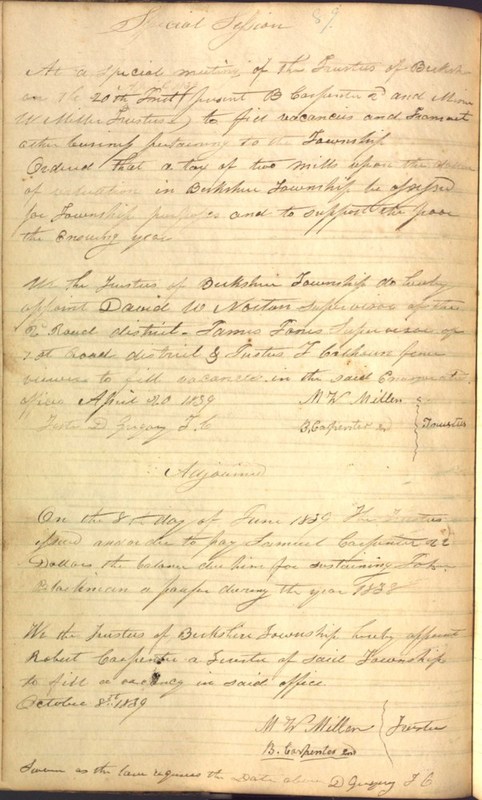 Special Session 89
At a special meeting of the Trustees of Berkshire
on the 20th Inst (present B Carpenter 2d and
W Miller Trustees) to fill vacancies and Transact
other business pertaining to the Township
Ordered that a tax of two mills upon the dollar
of valuation in Berkshire Township be assessed
for Township purposes and to support the poor
the Ensuing year
We the Trustees of Berkshire Township do hereby
appoint David W Norton Supervisor of the
Road district James Jones Supervisor of
Road district & Justus F Calhoun fence
viewers to fill vacancies in the said Enumerated
offices April 20 1839 M W Miller
Teste D Gregory T. C B. Carpenter 2d Trustees
Adjourned
On the 8th day of June 1839 The Trustees
issued an order to pay Samuel Carpenter
Dollars the balance due him for sustaining John
Blackman a pauper during the year 1838
We the Trustees of Berkshire Township hereby appoint
Robert Carpenter a Trustee of said Township
to fill a vacancy in said office
October 8th 1839
M W Miller Trustees
B. Carpenter 2d
Sworn as the law requires the Date above D Gregory T C